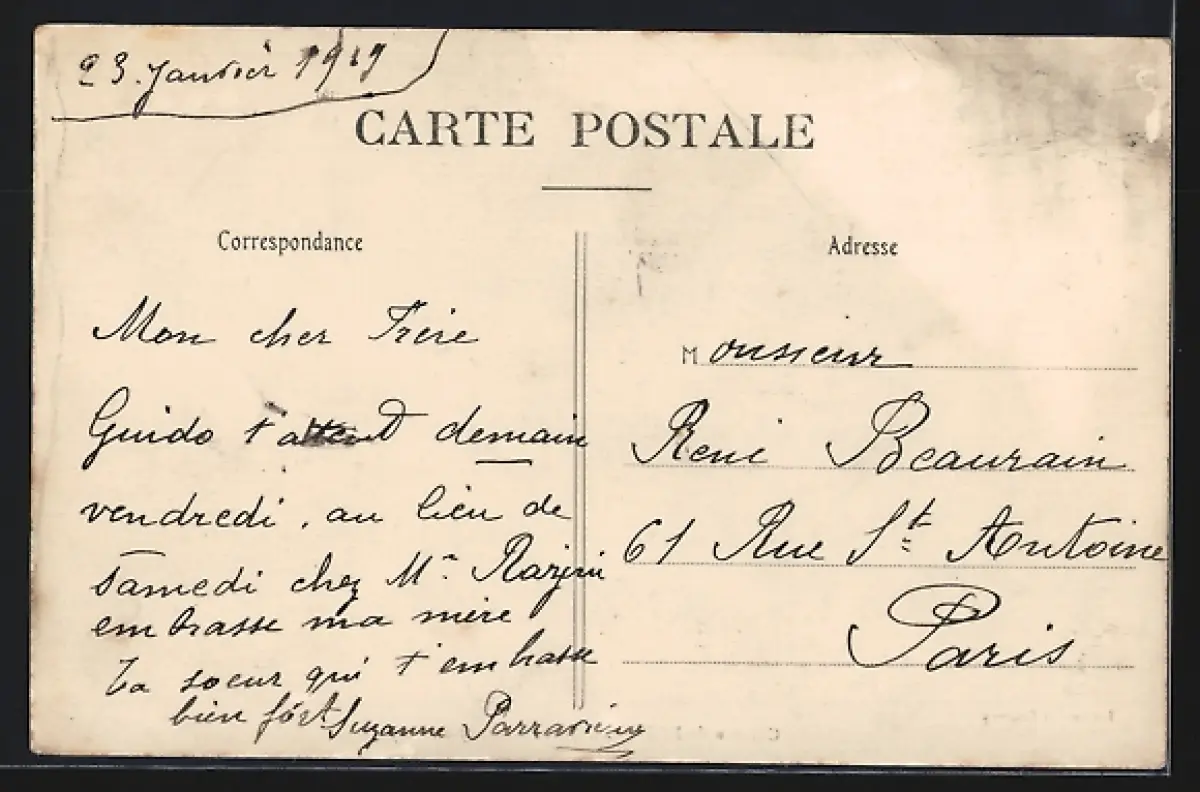 23. Janvier 1919
CARTE POSTALE
Correspondance
Mon cher Frère
Guido t'attend demain
vendredi, au lieu de
samedi chez Mr.
embrasse ma mère
Ta soeur qui t'embrasse
bien fort Suzanne
Adresse
Monsieur
René Beaurain
61 Rue St. Antoine
Paris